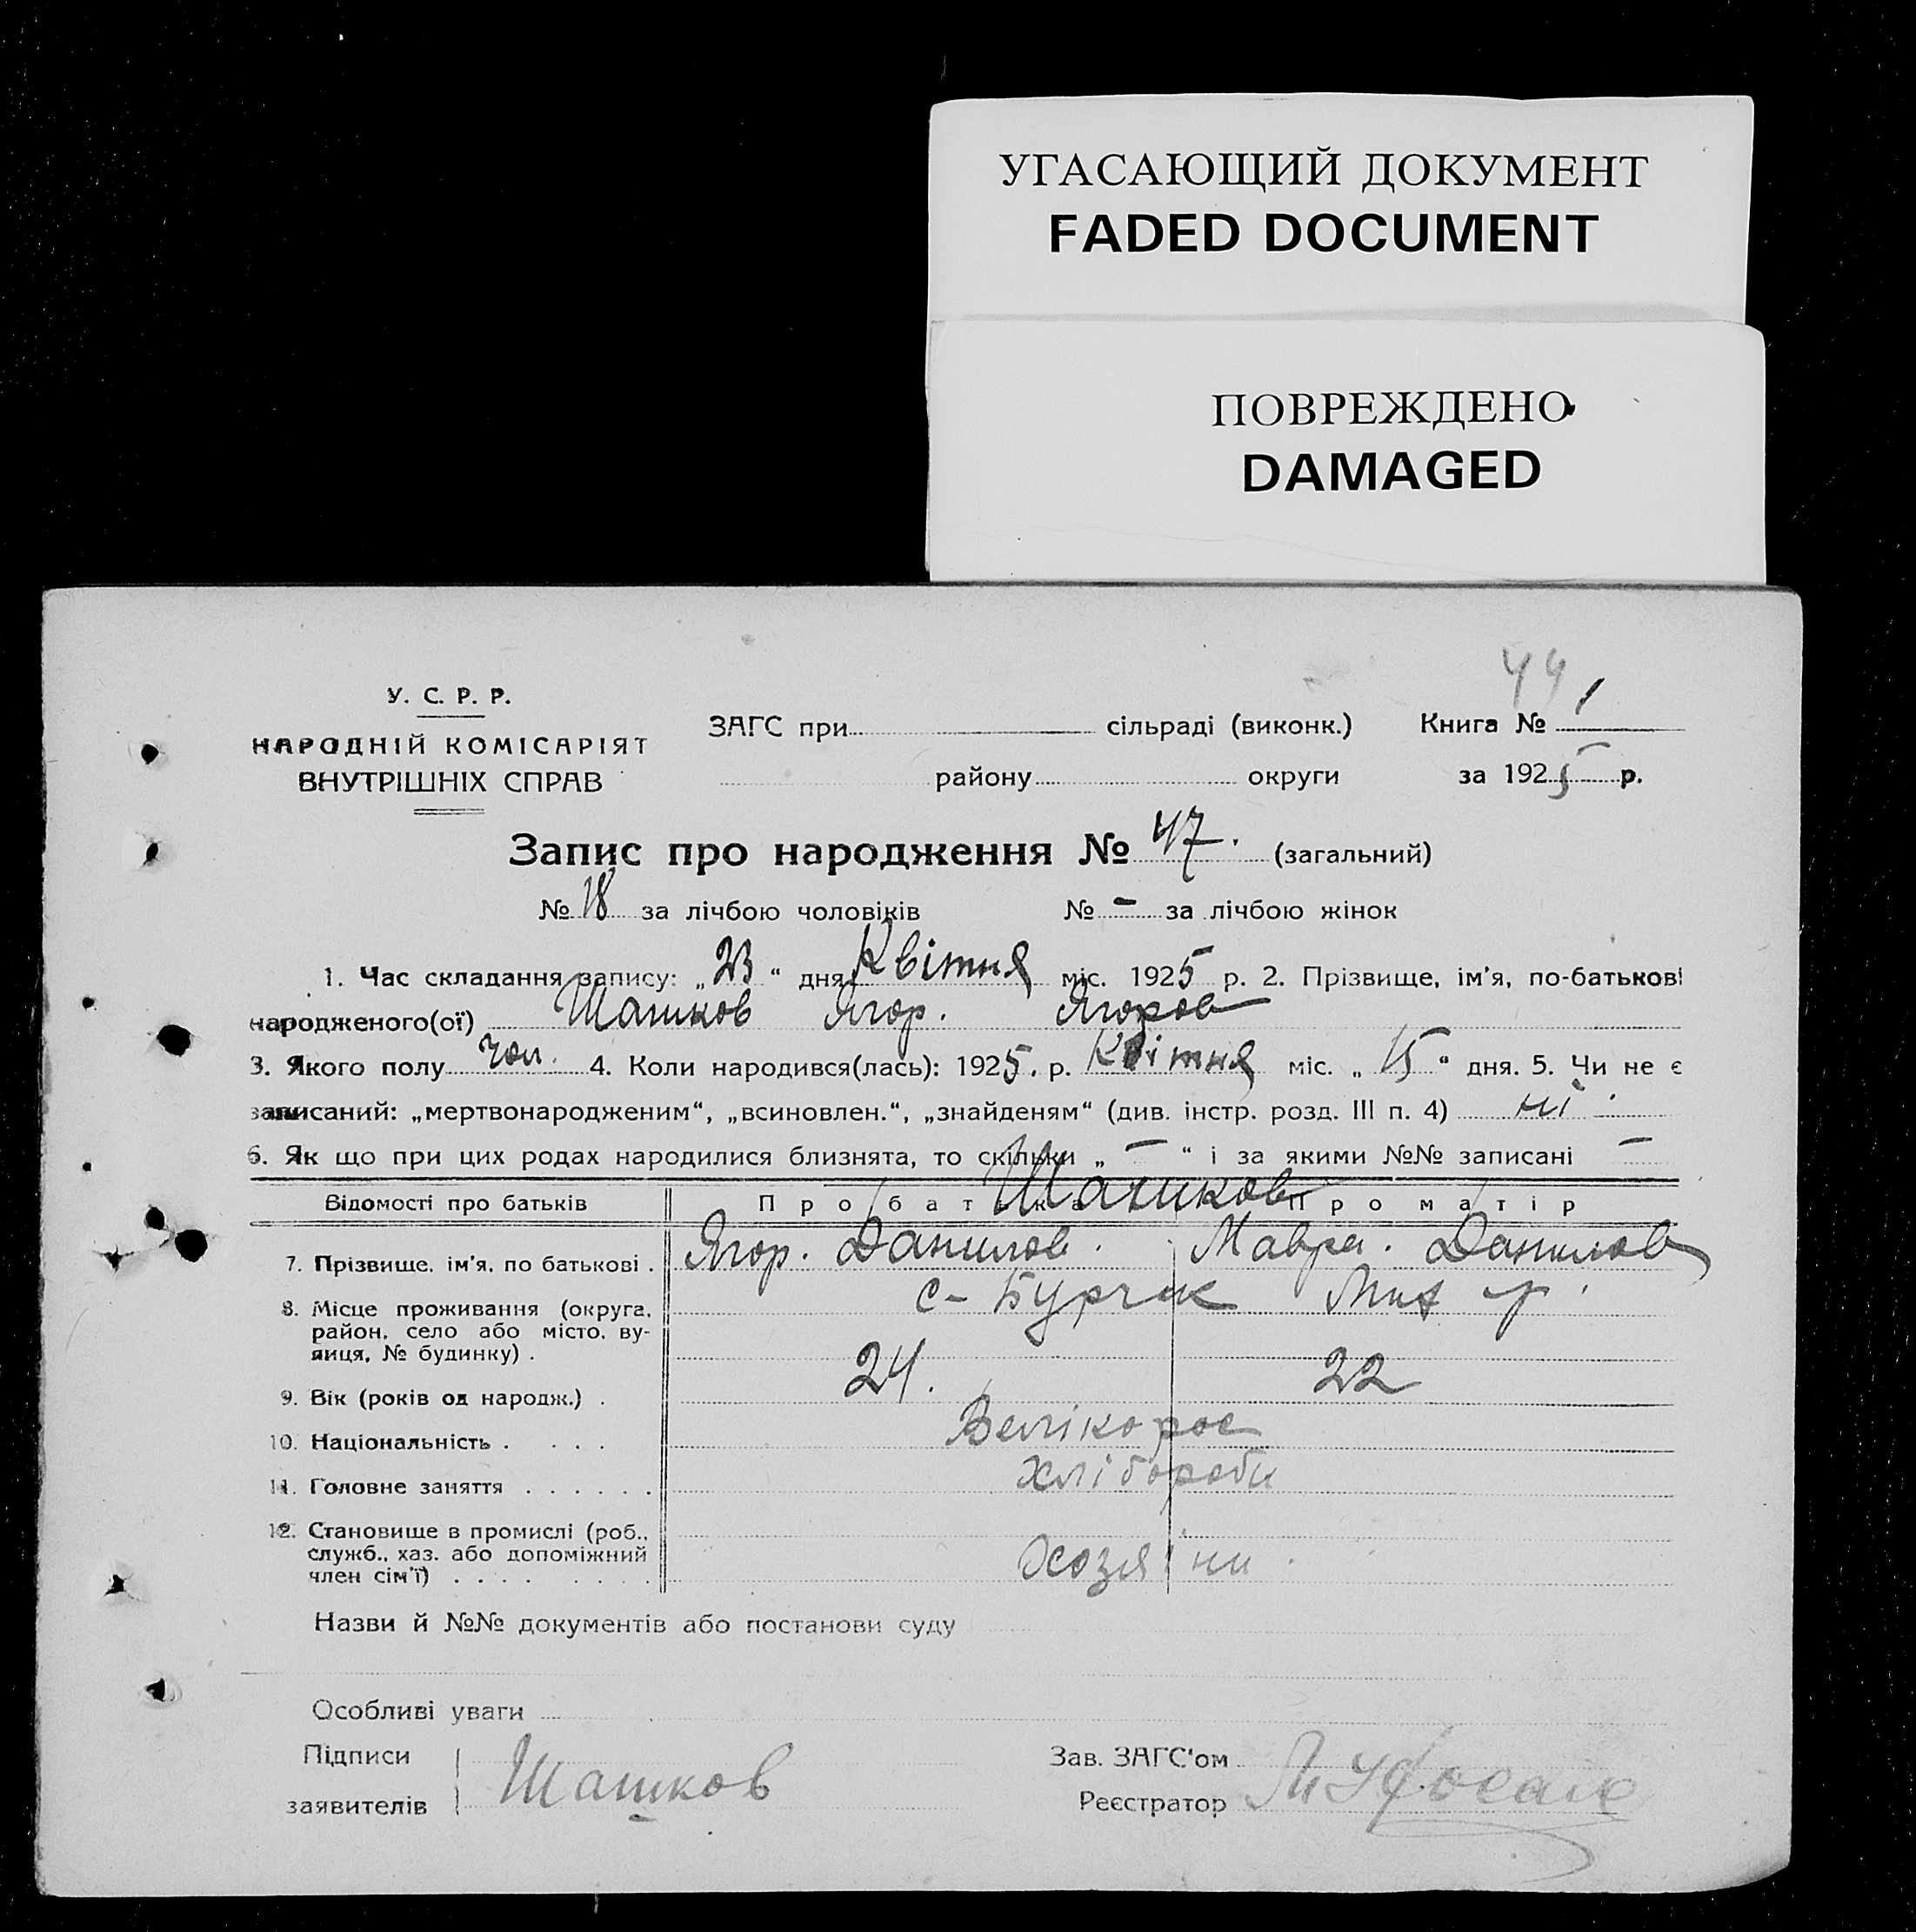 УГАСАЮЩИЙ ДОКУМЕНТ
FADED DOCUMENT
ПОВРЕЖДЕНО
DAMAGED
У. С. Р. Р.
НАРОДНІЙ КОМІСАРІЯТ
ВНУТРІШНІХ СПРАВ
ЗАГС при сільраді (виконк.)
району округи
Книга № 1
за 1925 р.
Запис про народження № 47. (загальний)
№ 18 за лічбою чоловіків № – за лічбою жінок
1. Час складання запису: „23“ дня Квітня міс. 1925 р. 2. Прізвище, ім'я, по-батькові
народженого(ої) Шашков Ягор. Ягоров
3. Якого полу чол. 4. Коли народився(лась): 1925. р. Квітня міс. „15“ дня. 5. Чи не є
записаний: „мертвонародженим“, „всиновлен.“, „знайденям“ (див. інстр. розд. III п. 4) ні
6. Як що при цих родах народилися близнята, то скільки „–“ і за якими №№ записані –
Відомості про батьків Про батька Про матір
Шашков
7. Прізвище, ім'я, по батькові . Ягор. Данилов. Мавра. Данилов
8. Місце проживання (округа, с-Бурчак
район, село або місто, ву-
лиця, № будинку) .
9. Вік (років од народж.) . 24. 22
10. Національність . . . . Велікорос
11. Головне заняття . . . . . . Хлібороби
12. Становище в промислі (роб.,
служб., хаз. або допоміжний
член сім'ї) . . . . . . . . Хозяїни.
Назви й №№ документів або постанови суду
Особливі уваги
Підписи
заявителів Шашков
Зав. ЗАГС'ом
Реєстратор